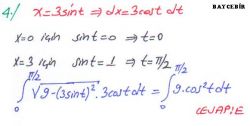 BAYCEBİR
4-) x=3sint ⇒ dx=3cost dt
x=0 için sint=0 ⇒ t=0
x=3 için sint=1 ⇒ t=π/2
∫₀^{π/2} √(9-(3sint)²) . 3cost dt = ∫₀^{π/2} 9.cos²t dt
CEVAP:E